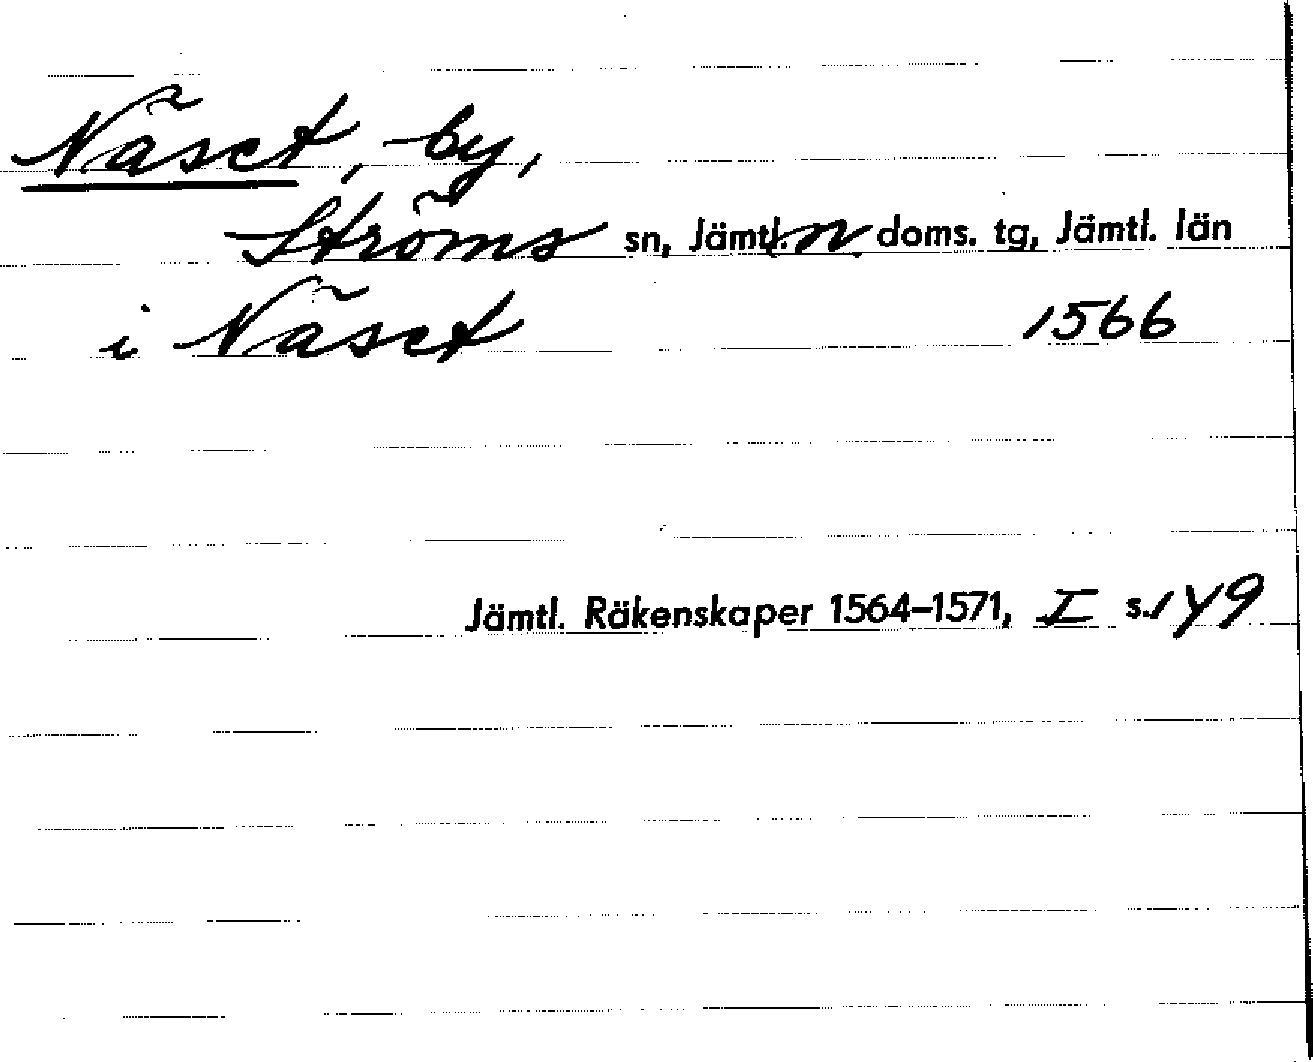 Näset, by,
Ströms sn, Jämtl. n doms. tg, Jämtl. län
i Näset 1566
Jämtl. Räkenskaper 1564–1571, I s. 149